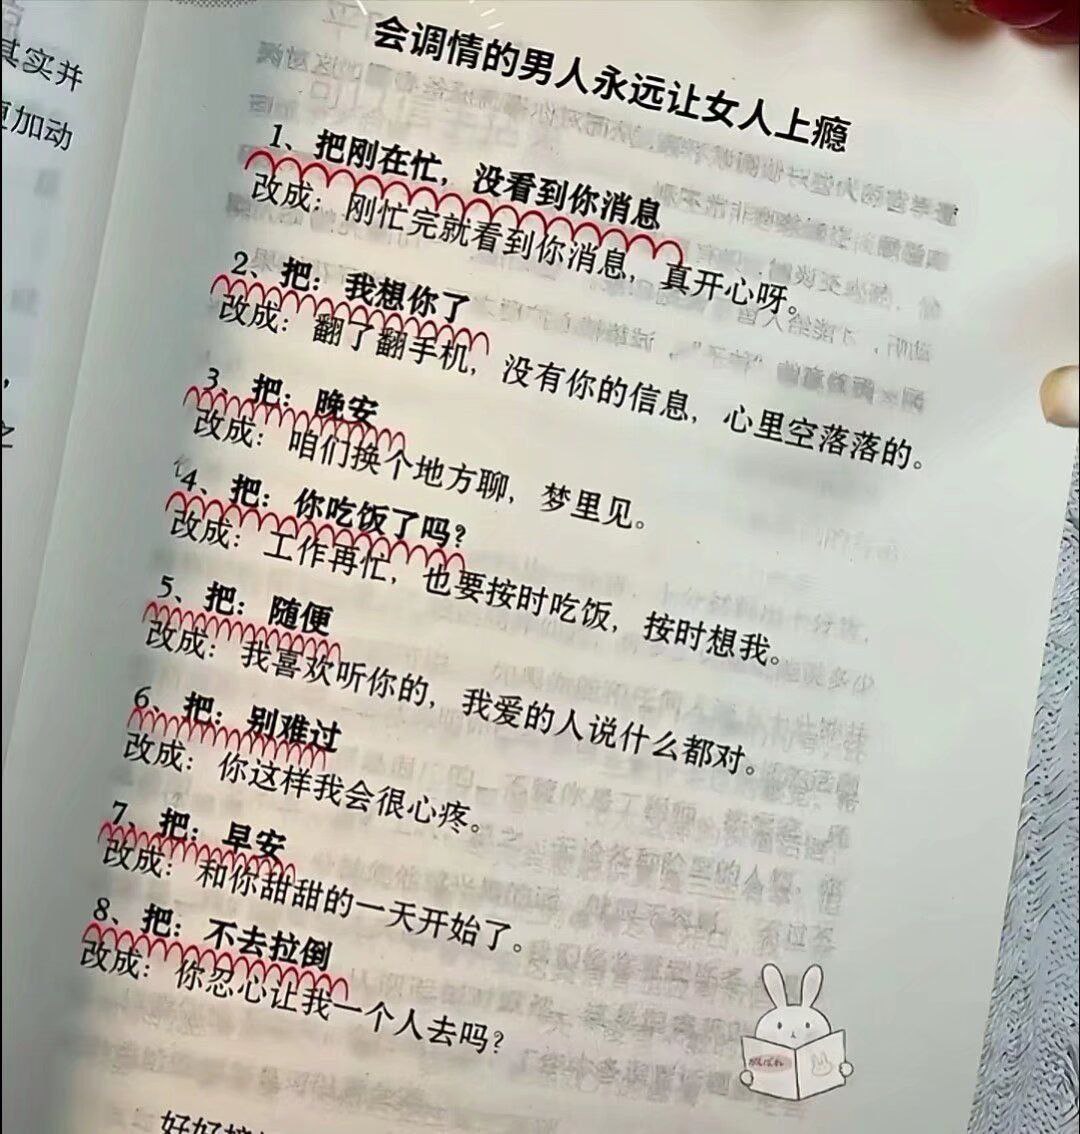 其实并
更加动
会调情的男人永远让女人上瘾
1、把刚在忙，没看到你消息
改成：刚忙完就看到你消息，真开心呀。
2、把：我想你了
改成：翻了翻手机，没有你的信息，心里空落落的。
3、把：晚安
改成：咱们换个地方聊，梦里见。
4、把：你吃饭了吗？
改成：工作再忙，也要按时吃饭，按时想我。
5、把：随便
改成：我喜欢听你的，我爱的人说什么都对。
6、把：别难过
改成：你这样我会很心疼。
7、把：早安
改成：和你甜甜的一天开始了。
8、把：不去拉倒
改成：你忍心让我一个人去吗？
好好